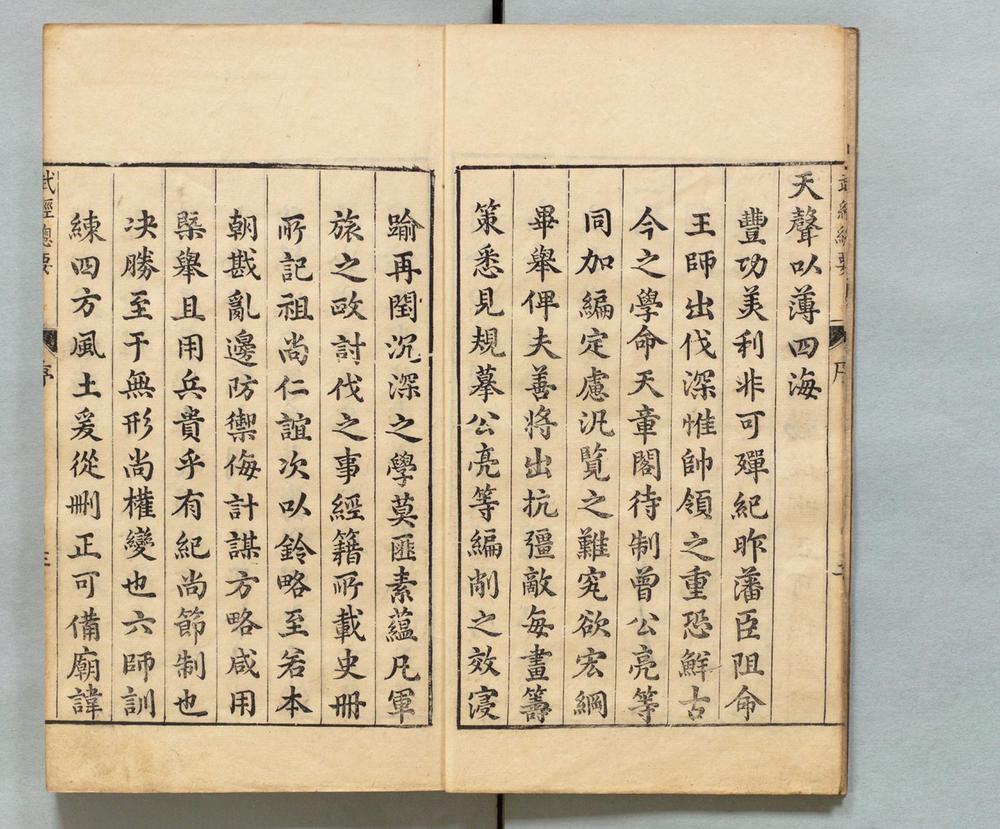 天聲以薄四海
豐功美利非可殫紀昨藩臣阻命
王師出伐深惟帥領之重恐鮮古
今之學命天章閣待制曾公亮等
同加編定慮汎覽之難究欲宏綱
畢舉俾夫善將出抗彊敵每畫籌
策悉見規摹公亮等編削之效寖
踰再閏沉深之學莫匪素蘊凡軍
旅之政討伐之事經籍所載史冊
所記祖尚仁誼次以鈐略至若本
朝戡亂邊防禦侮計謀方略咸用
槩舉且用兵貴乎有紀尚節制也
决勝至于無形尚權變也六師訓
練四方風土爰從刪正可備廟諱
武經總要
序